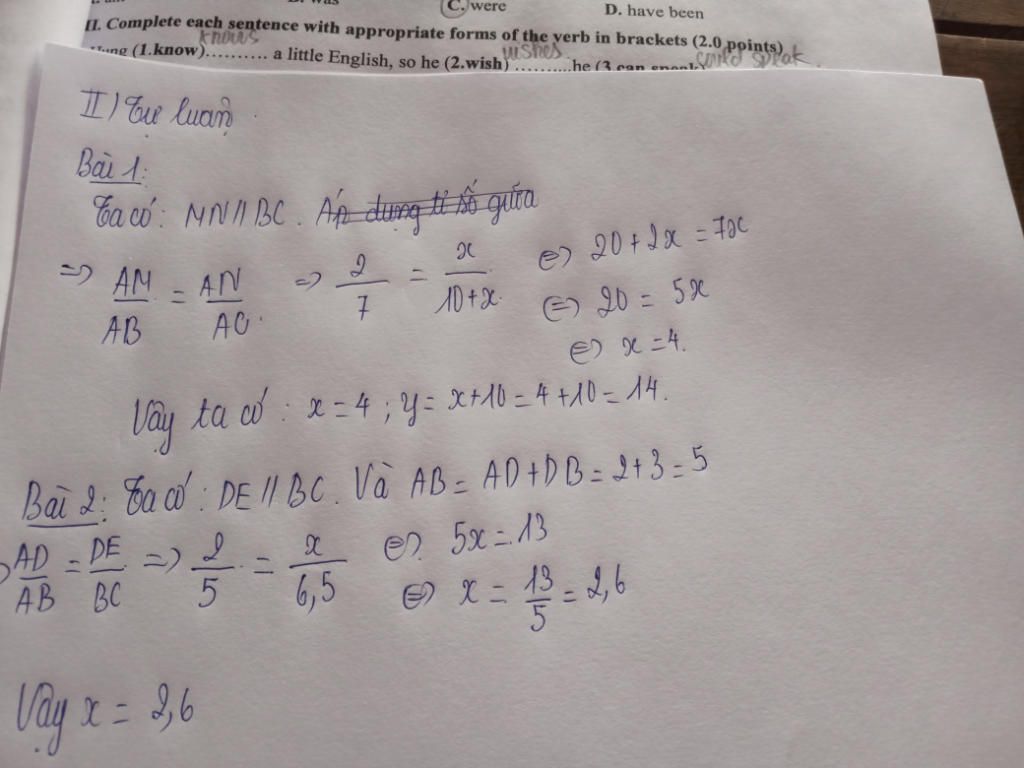 C. were
D. have been
II. Complete each sentence with appropriate forms of the verb in brackets (2.0 points)
knows wishes could speak
(1.know).......... a little English, so he (2.wish) ..........he (3.can speak)
II) Tự luận
Bài 1:
Ta có: MN // BC. Áp dụng tỉ số giữa
=> AM/AB = AN/AC. => 2/7 = x/10+x. <=> 20 + 2x = 7x
<=> 20 = 5x
<=> x = 4.
Vậy ta có : x = 4 ; y = x+10 = 4 +10 = 14.
Bài 2: Ta có : DE // BC. Và AB = AD + DB = 2 + 3 = 5
AD/AB = DE/BC => 2/5 = x/6,5 <=> 5x = 13
<=> x = 13/5 = 2,6
Vậy x = 2,6